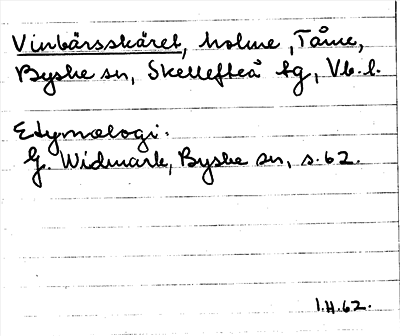 Vinbärsskäret, holme, Tåme,
Byske sn, Skellefteå tg, Vb. l.
Etymologi.
G. Widmark, Byske sn, s. 62.
I.H.62.